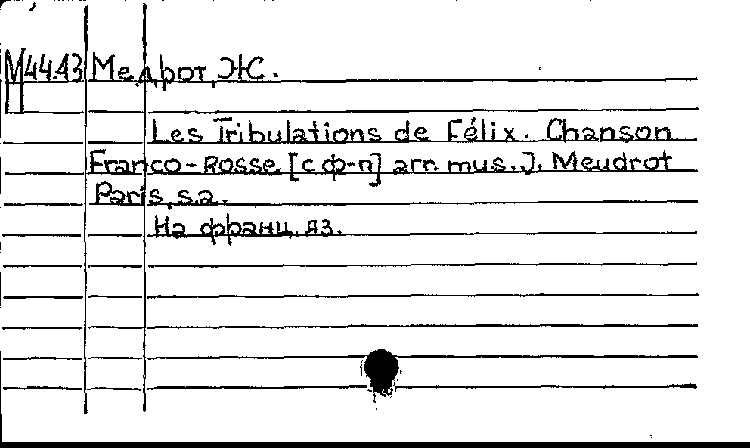 М44.13 Медрот, Ж.
Les Tribulations de Félix. Chanson
Franco-Rosse [с ф-п] arr. mus. J. Meudrot
Paris, s.a.
На франц. яз.